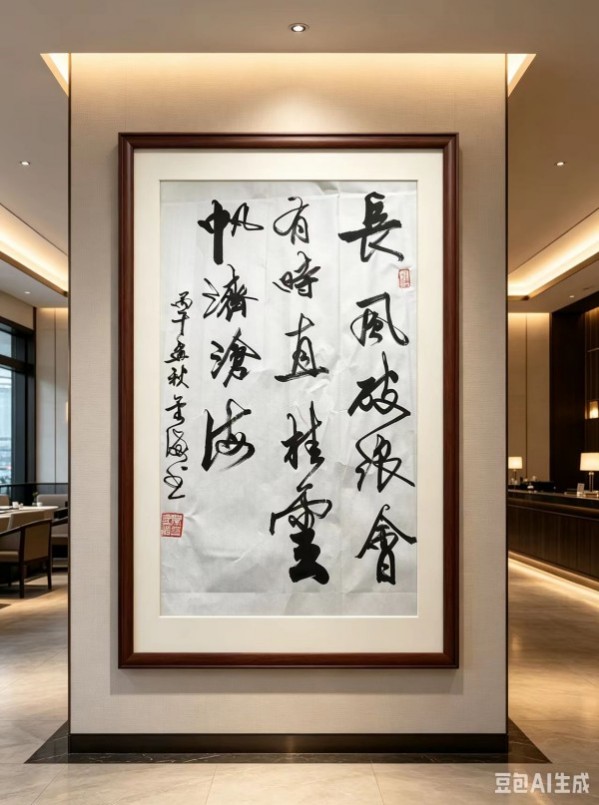 長風破浪會
有時直挂雲
帆濟滄海
丙午秋海书
豆包AI生成